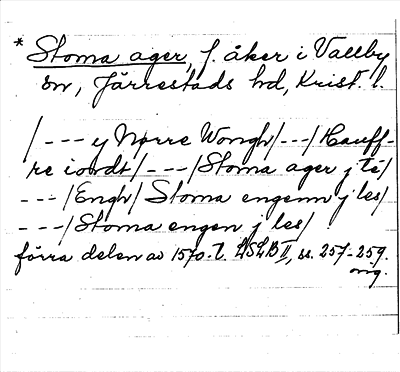 * Stoma ager, f. åker i Vallby
sn, Järrestads hd, Krist. l.
/ - - - y Nørre Wongh/ - - -/ Hauff-
re iordt/ - - -/ Stoma ager j té/
- - -/ Engh/ Stoma engenn j les/
- - -/ Stoma engen j les/
förra delen av 1570-t. LSLB II, ss. 257-259.
orig.